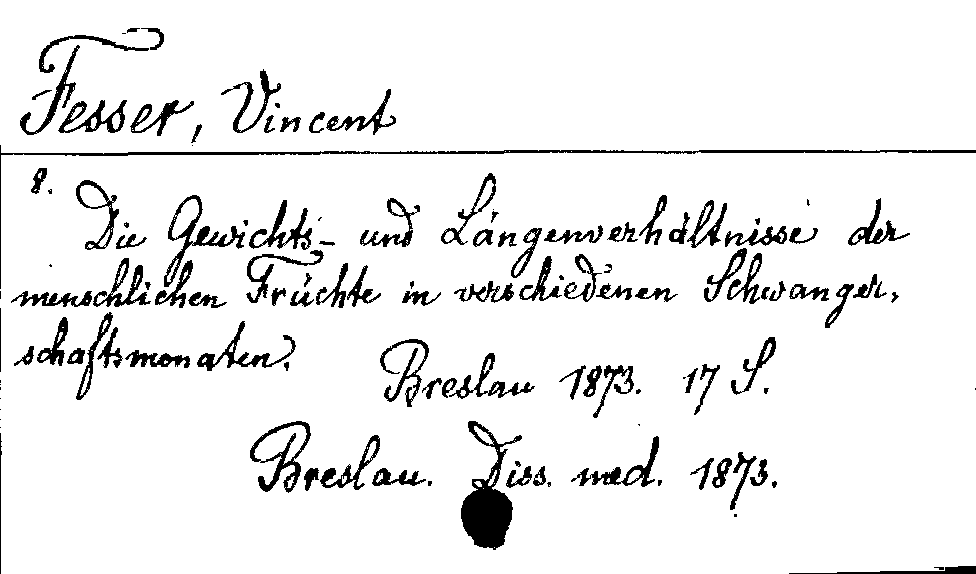 Fesser, Vincent
8.
Die Gewichts- und Längenverhältnisse der
menschlichen Früchte in verschiedenen Schwanger-
schaftsmonaten.
Breslau 1873. 17 S.
Breslau. Diss. med. 1873.